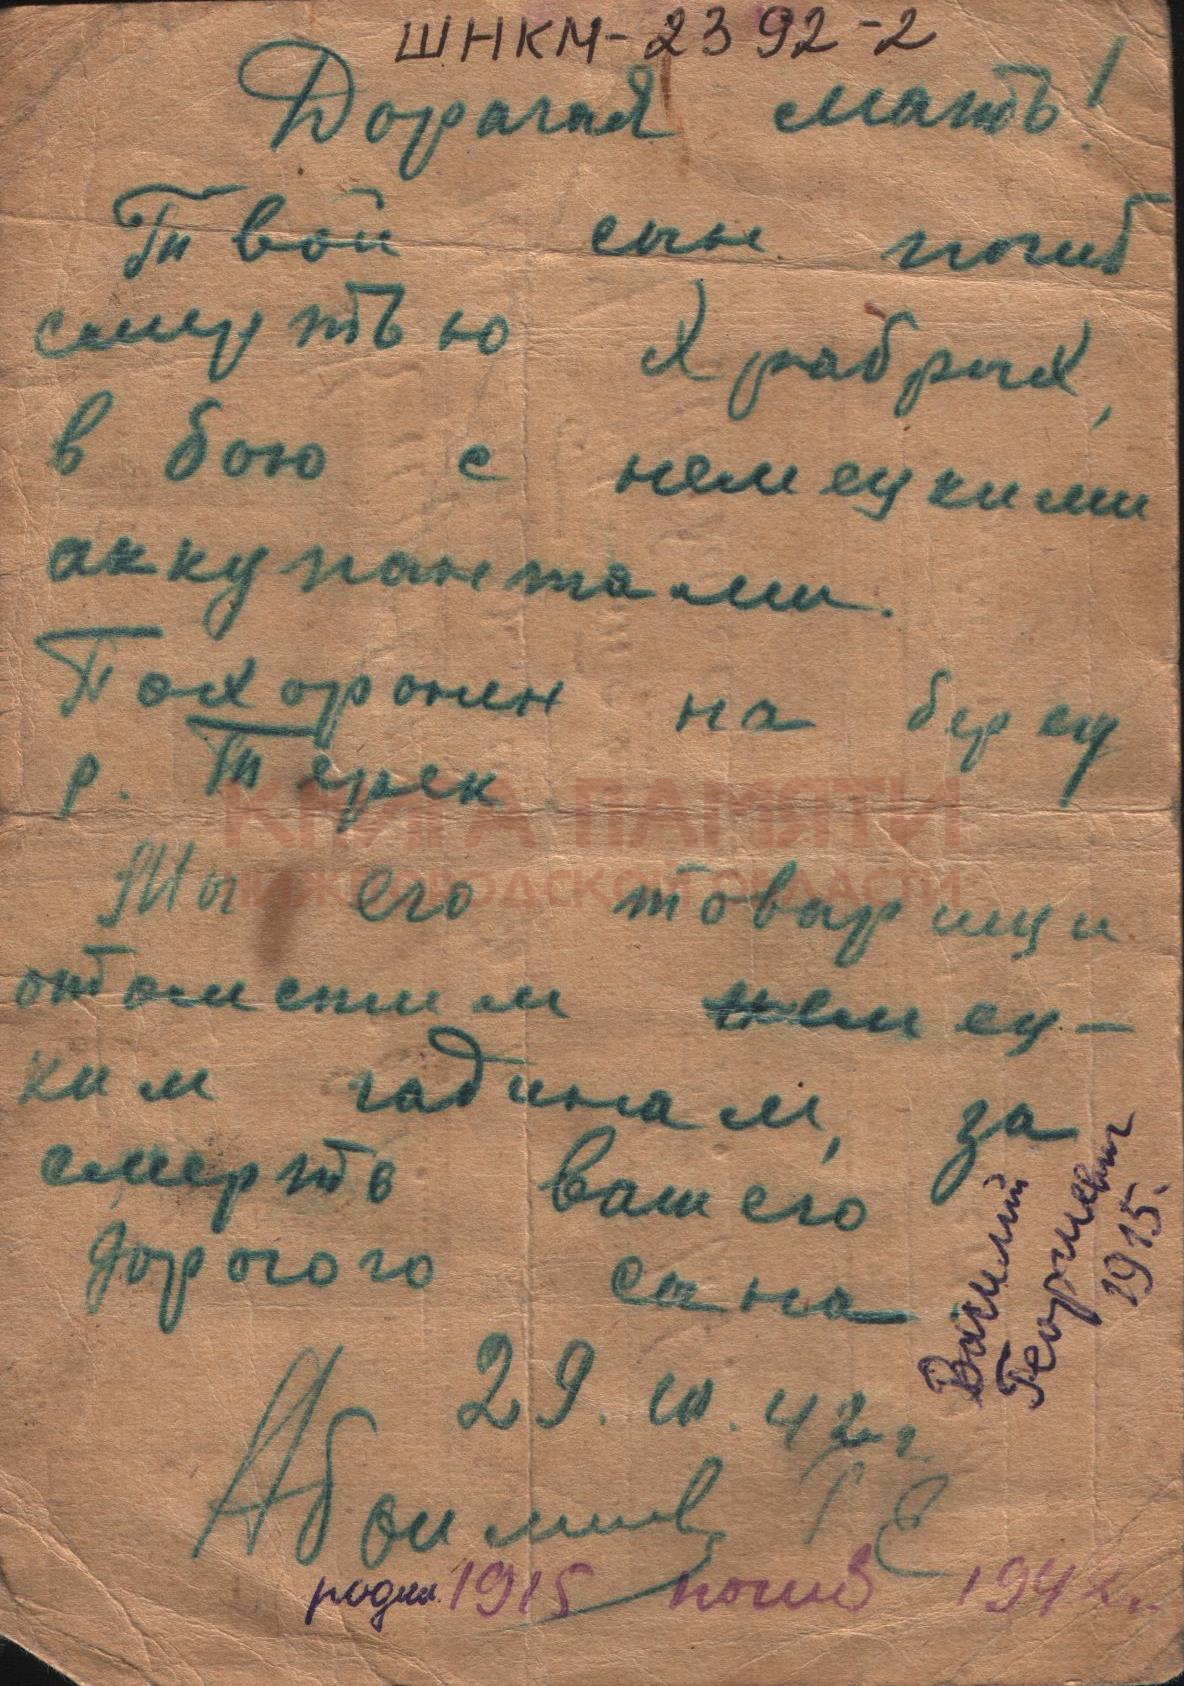 ШНКМ-2392-2
Дорагая мать!
Твой сын погиб
смертью храбрых,
в бою с немецкими
аккупантами.
Похоронен на берегу
р. Терек
КНИГА ПАМЯТИ
НИЖЕГОРОДСКОЙ ОБЛАСТИ
Мы его товарищи
отомстим немец-
ким гадинам, за
смерть вашего
дорогого сына
Василий
Георгиевич
1915.
29. 42 г.
родил. 1915 погиб 194